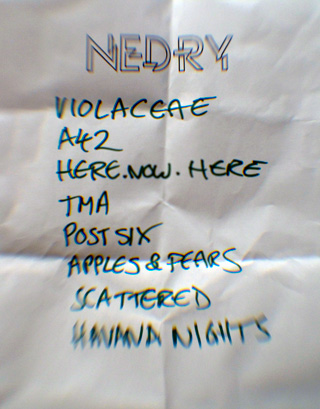 NEDRY
VIOLACEAE
A42
HERE.NOW.HERE
TMA
POST SIX
APPLES & PEARS
SCATTERED
HAVANA NIGHTS